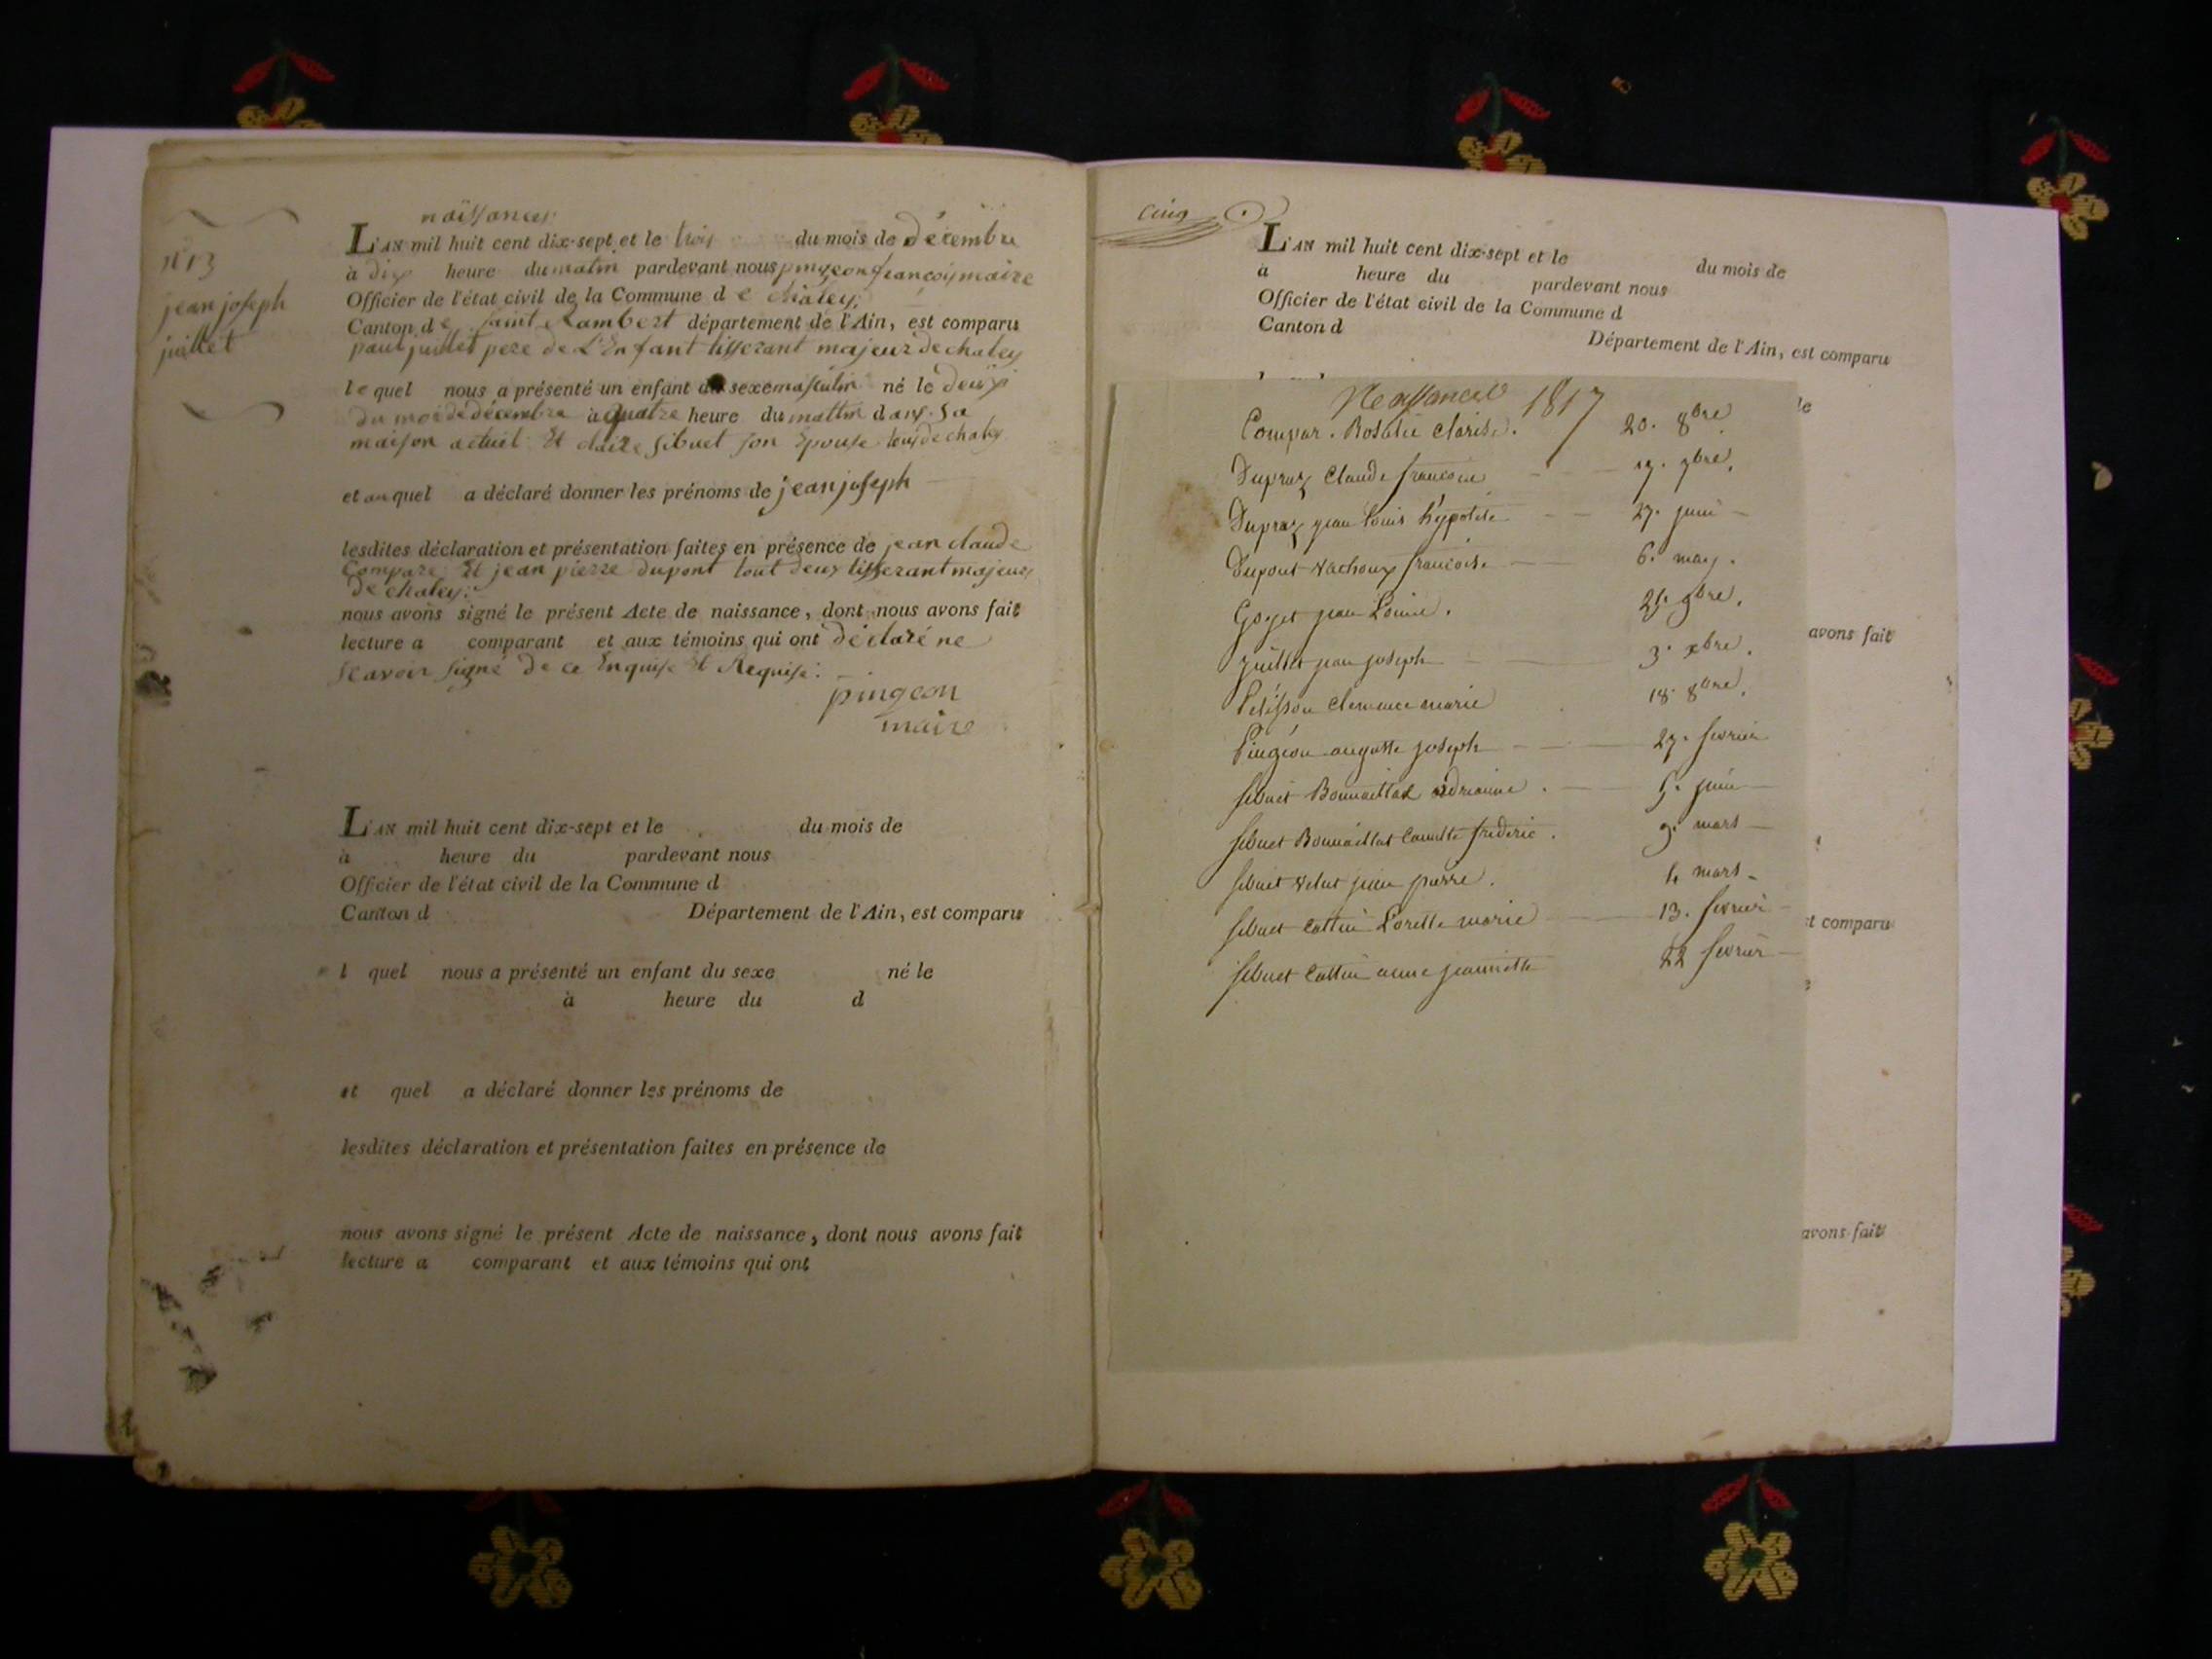 naissances
n° 13
jean joseph
juillet
L'AN mil huit cent dix-sept et le trois du mois de décembre
à dix heure du matin pardevant nous pingeon françois maire
Officier de l'état civil de la Commune de chaley
Canton de saint Rambert département de l'Ain, est comparu
paul juillet pere de L'Enfant tisserant majeur de chaley
lequel nous a présenté un enfant du sexe masculin né le deux
du mois de décembre à quatre heure du matin dans sa
maison actuel Et claire sibuet son Epouse tous de chaley
et auquel a déclaré donner les prénoms de jean joseph
lesdites déclaration et présentation faites en présence de jean claude
Compare Et jean pierre dupont tout deux tisserant majeurs
de chaley:
nous avons signé le présent Acte de naissance, dont nous avons fait
lecture a comparant et aux témoins qui ont déclaré ne
scavoir signé de ce Enquise Et Requise:
pingeon
maire
L'AN mil huit cent dix-sept et le du mois de
à heure du pardevant nous
Officier de l'état civil de la Commune d
Canton d Département de l'Ain, est comparu
l quel nous a présenté un enfant du sexe né le
à heure du d
et quel a déclaré donner les prénoms de
lesdites déclaration et présentation faites en présence de
nous avons signé le présent Acte de naissance, dont nous avons fait
lecture a comparant et aux témoins qui ont
Cinq
L'AN mil huit cent dix-sept et le du mois de
à heure du pardevant nous
Officier de l'état civil de la Commune d
Canton d Département de l'Ain, est comparu
le
Neassances 1817
Compar. Rosalie Clarise. 20. 8bre
Dupraz Claude francois 17. 9bre.
Dupraz jean Louis hypolite 27. juin
Dupont Vachoux francoise 6. may.
Goyet jean Louis. 9bre.
juillet jean joseph 3. xbre.
Pelisson Clemence marie 18. 8bre.
Pingeon auguste joseph 27. fevrier
Sibuet Bonnaillat adrianne. 5. juin
Sibuet Bonnaillat Camille frederic. 9. mars
Sibuet Velut jean pierre. 4 mars
Sibuet Cattin Lorette marie 13. fevrier
Sibuet Cattin anne jeannette 22 fevrier
avons fait
t comparu
avons fait